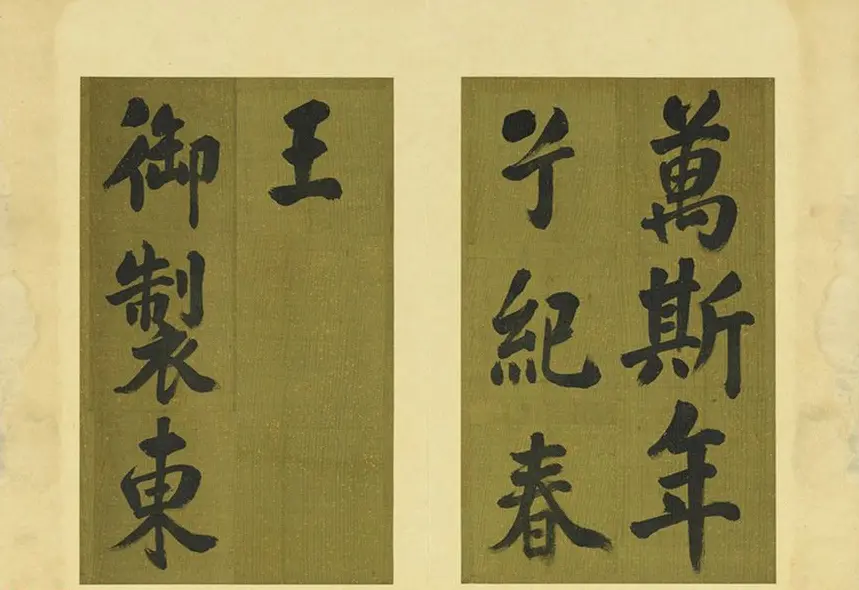 萬斯年
兮紀春
王
御製東